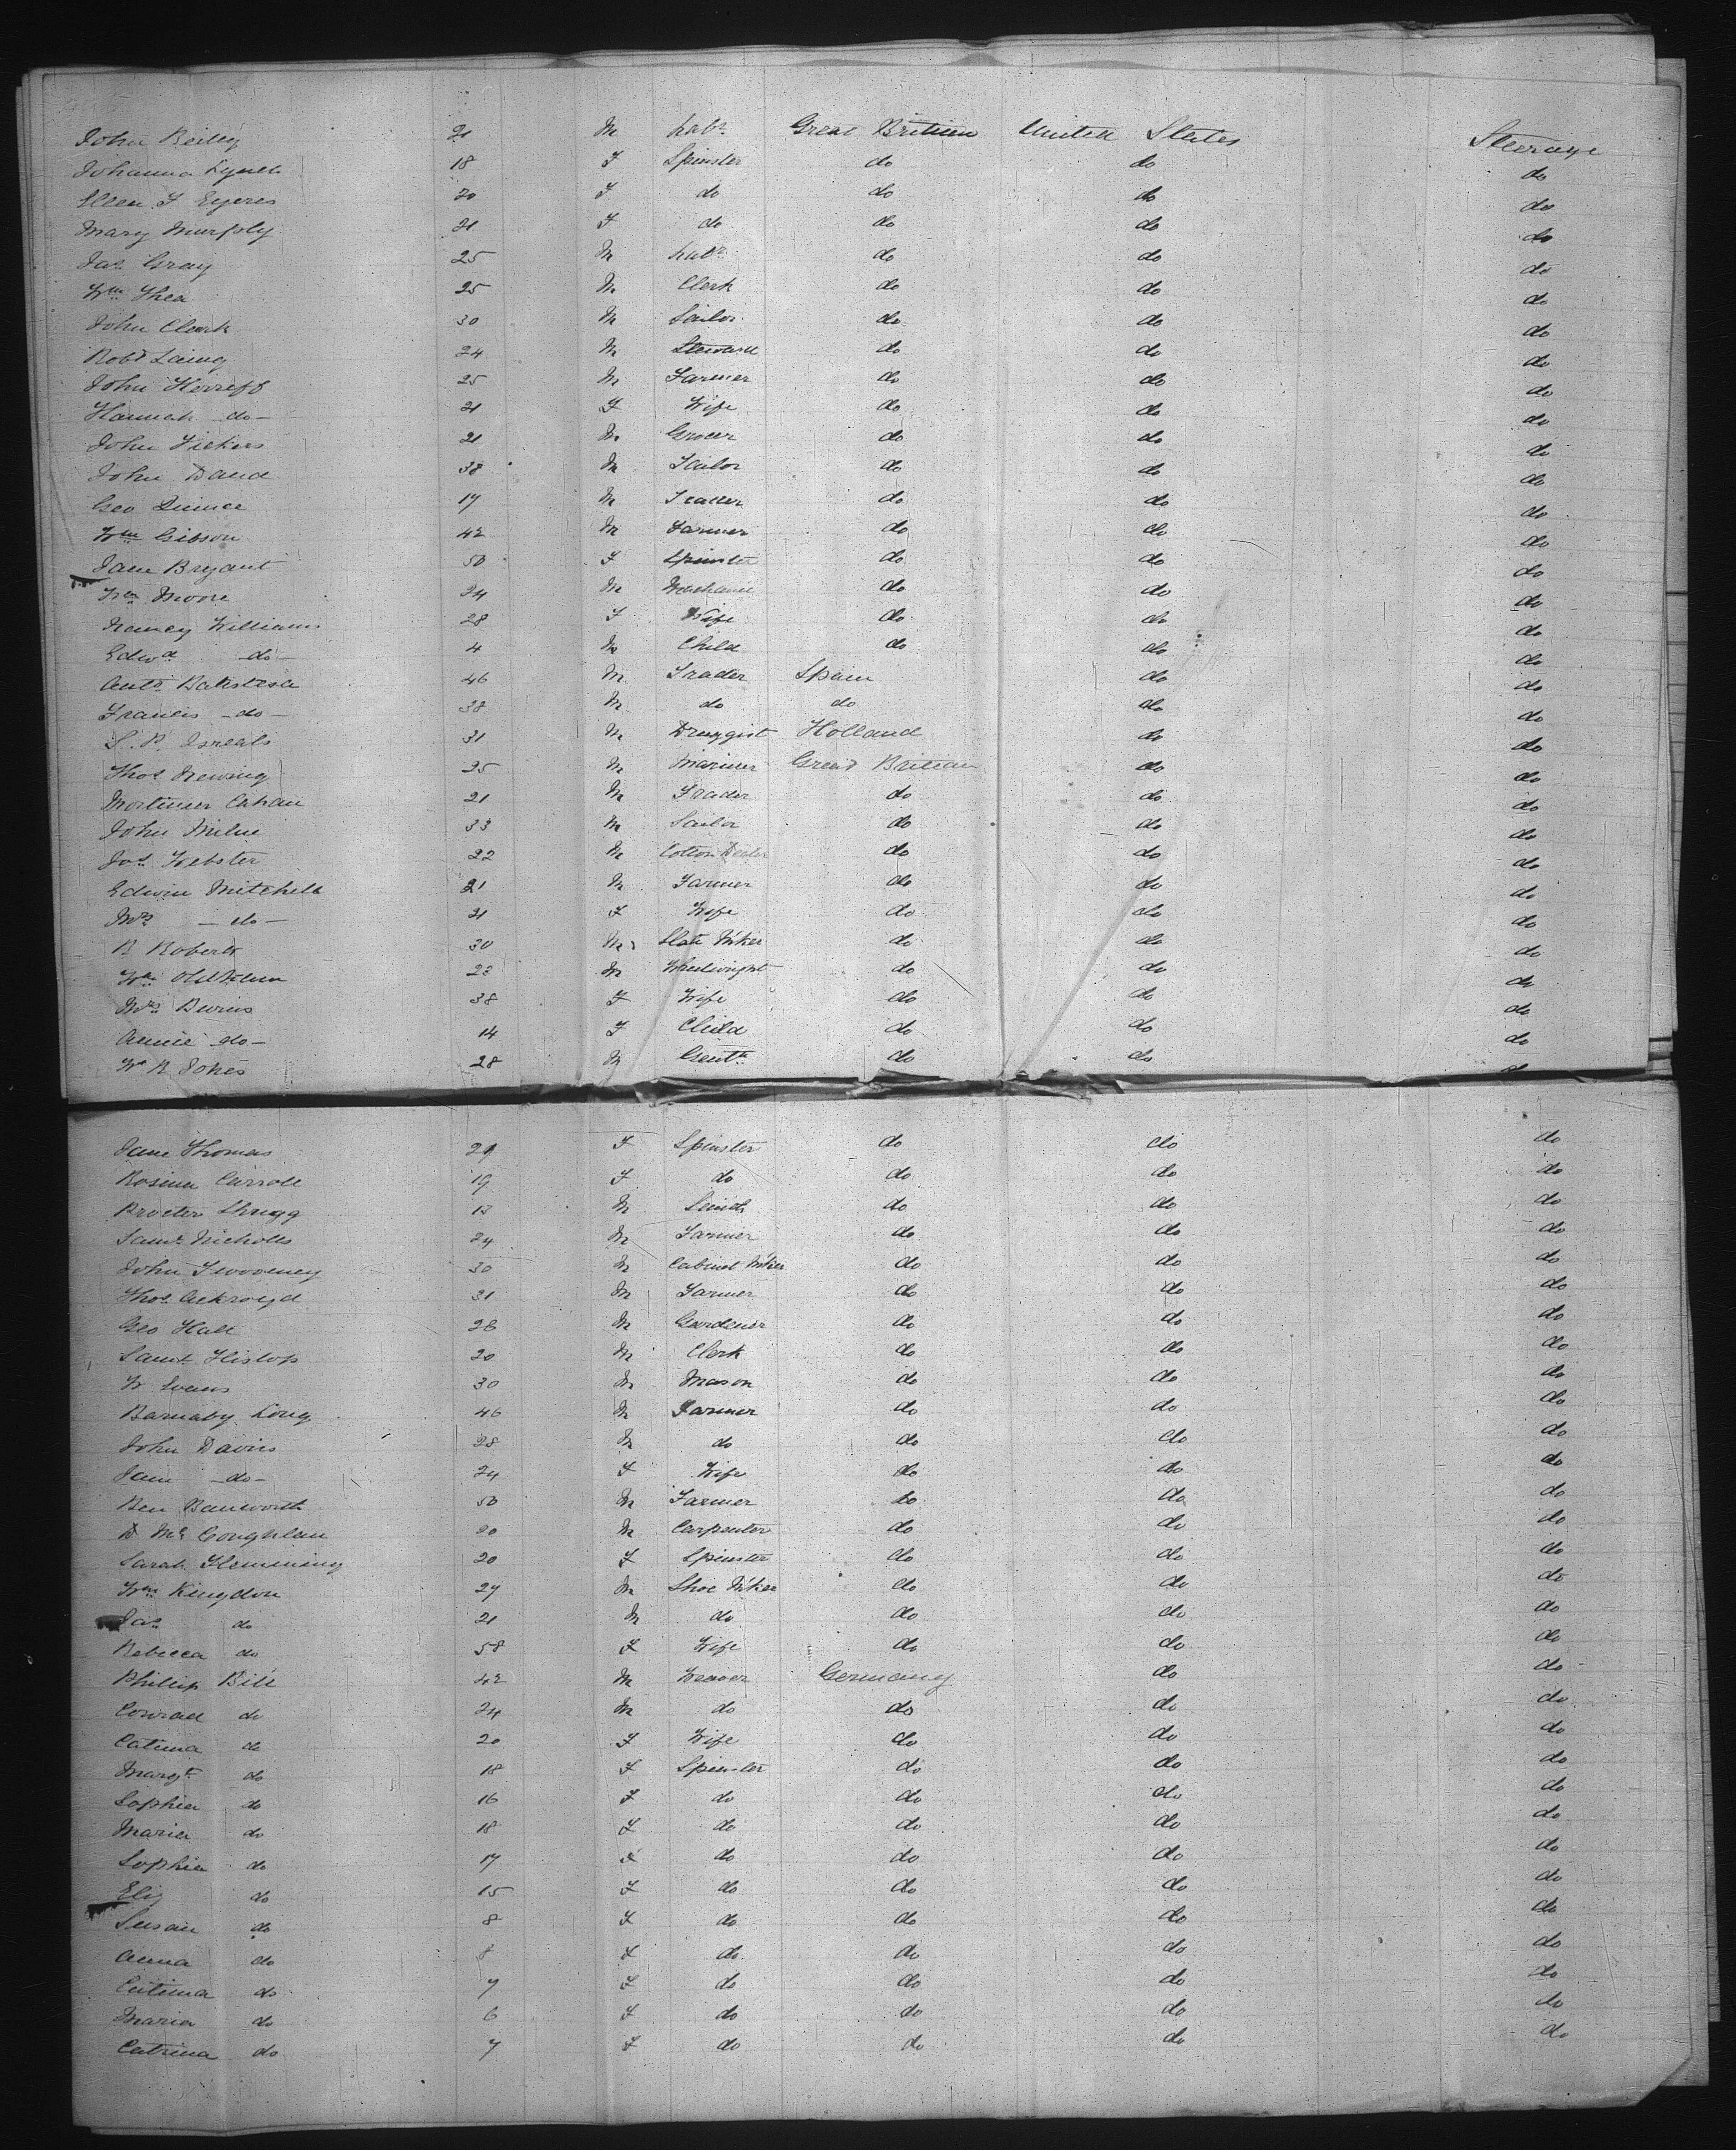 John Reiley 21 M Labr Great Britain United States Steerage
Johanna Lynch 18 F Spinster do do do
Ellen F Eyeres 20 F do do do do
Mary Murphy 21 F do do do do
Jas Gray 25 M Labr do do do
Wm Shea 25 M Clerk do do do
John Clark 30 M Sailor do do do
Robt Laing 24 M Steward do do do
John 25 M Farmer do do do
Hannah -do- 21 F Wife do do do
John Vickers 21 M Grocer do do do
John Daud 38 M Tailor do do do
Geo Quince 17 M do do do
Wm Gibson 42 M Farmer do do do
Jane Bryant 50 F Spinster do do do
Wm Moore 24 M Mechanic do do do
Nancy Williams 28 F Wife do do do
Edwd -do- 4 M Child do do do
Anto 46 M Trader Spain do do
Francis -do- 38 M do do do do
S. P. Isreals 31 M Druggist Holland do do
Thos Newing 25 M Mariner Great Britain do do
Mortimer Cahan 21 M Trader do do do
John Milne 33 M Sailor do do do
Jos Webster 22 M Cotton Dealer do do do
Edwin Mitchell 21 M Farmer do do do
Mrs -do- 21 F Wife do do do
R Roberts 30 M Slate M'ker do do do
Wm Oldham 23 M Wheelwright do do do
Mrs 38 F Wife do do do
Annie -do- 14 F Child do do do
Wm R Jones 28 M Gentn do do
Jane Thomas 29 F Spinster do do do
Rosina Carroll 19 F do do do do
Procter Shugg 13 M Smith do do do
Saml Nicholls 24 M Farmer do do do
John Twooeney 30 M Cabinet M'ker do do do
Thos Ackroyd 31 M Farmer do do do
Geo Hall 28 M Gardener do do do
Saml Hislop 20 M Clerk do do do
W Evans 30 M Mason do do do
Barnaby Long 46 M Farmer do do do
John Davies 28 M do do do do
Jane -do- 24 F Wife do do do
Ben 50 M Farmer do do do
D Mc Coughlan 20 M Carpenter do do do
Sarah Flemming 20 F Spinster do do do
Wm Kingdon 27 M Shoe M'ker do do do
Jas do 21 M do do do do
Rebecca do 58 F Wife do do do
Phillip Bill 42 M Weaver Germany do do
Conrad do 24 M do do do do
Catrina do 20 F Wife do do do
Margt do 18 F Spinster do do do
Sophia do 16 F do do do do
Maria do 18 F do do do do
Sophia do 17 F do do do do
Eliz do 15 F do do do do
Susan do 8 F do do do do
Anna do 8 F do do do do
Catrina do 7 F do do do do
Maria do 6 F do do do do
Catrina do 7 F do do do do